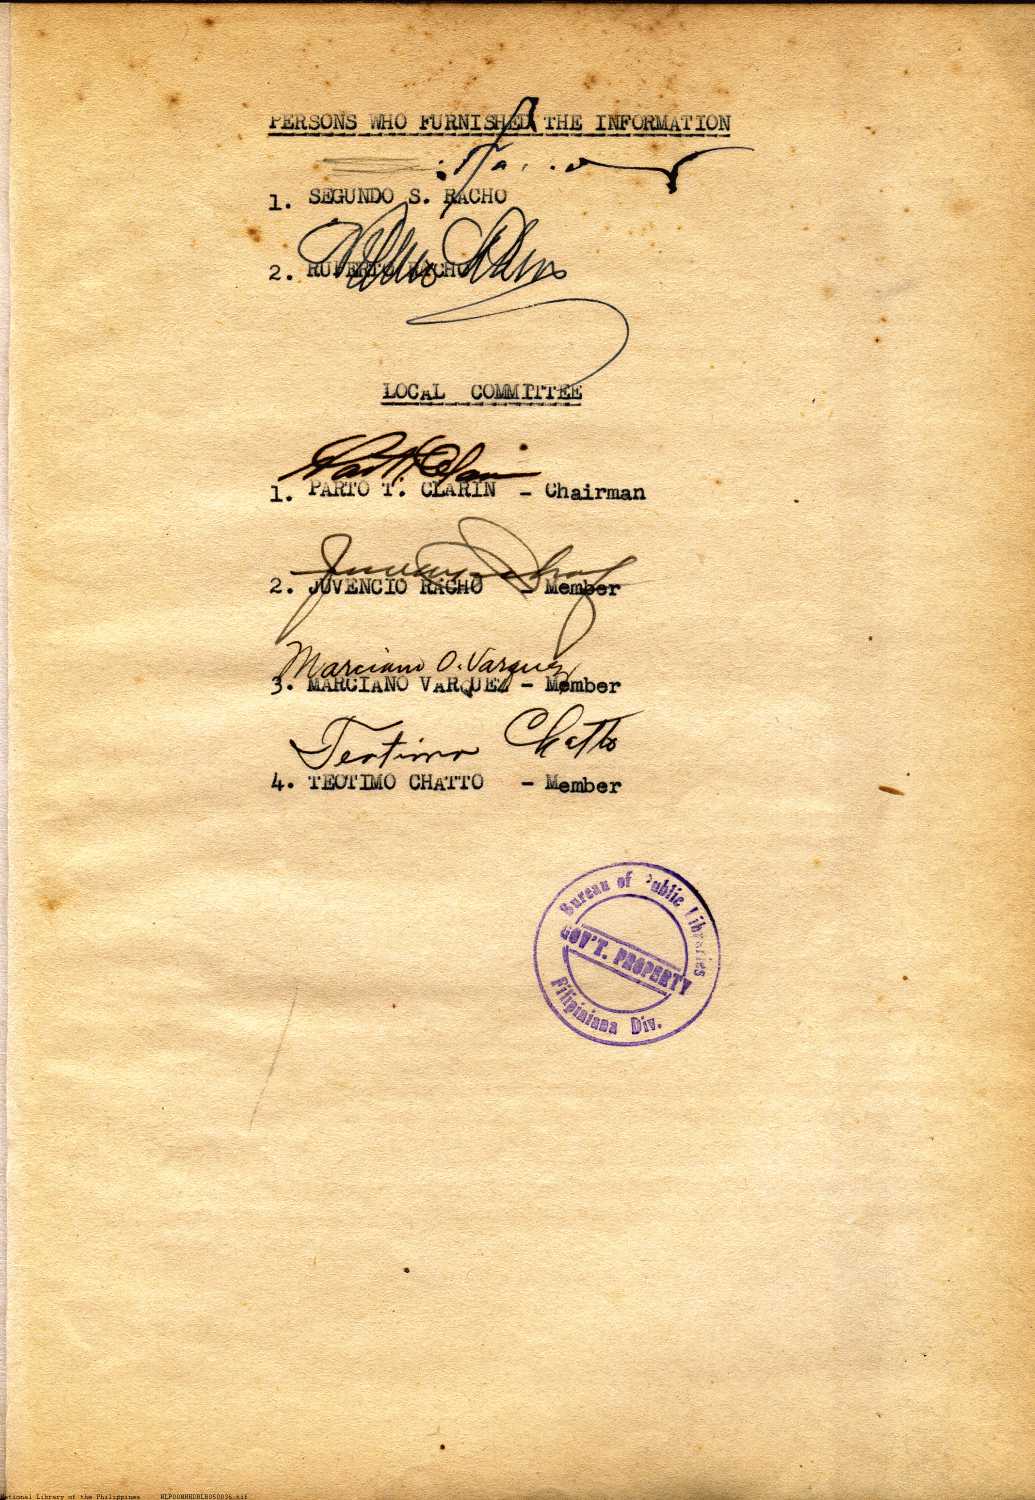 PERSONS WHO FURNISHED THE INFORMATION
1. SEGUNDO S. RACHO
2. RUPERTO RACHO
LOCAL COMMITTEE
1. PARTO T. CLARIN - Chairman
2. JUVENCIO RACHO - Member
Marciano O. Varquez
3. MARCIANO VARQUEZ - Member
Teotimo Chatto
4. TEOTIMO CHATTO - Member
Bureau of Public Libraries
GOV'T. PROPERTY
Filipiniana Div.
National Library of the Philippines